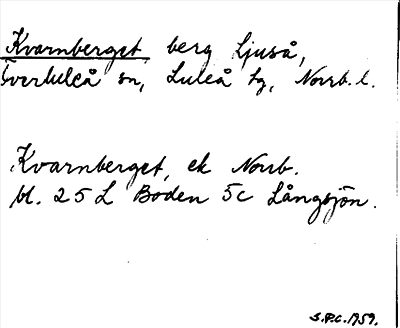 Kvarnberget, berg Ljuså,
Överluleå sn, Luleå tg, Norrb. l.
Kvarnberget, ek Norrb.
bl. 25 L Boden 5c Långsjön.
S.P.C. 1959.